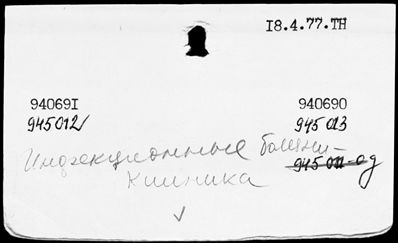 18.4.77.TH
940691 940690
945012 945013
Инфекционные болезни- 945011-од
Клиника